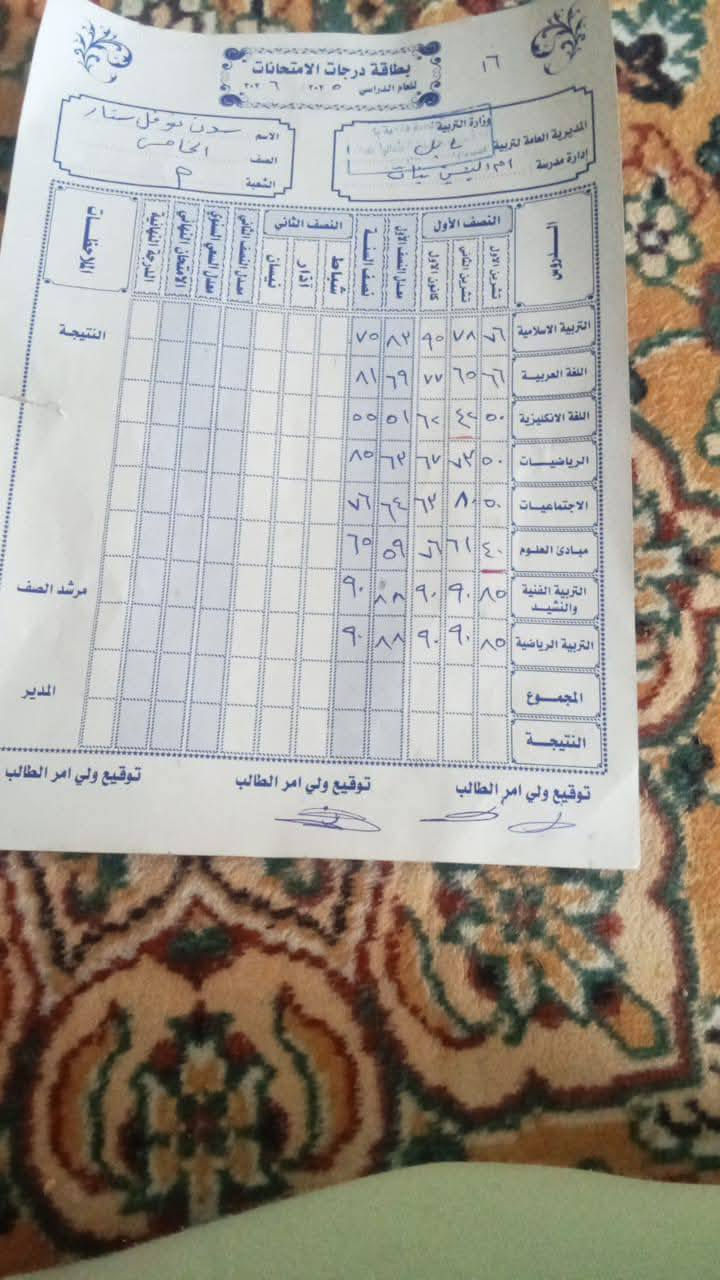 ١٦
بطاقة درجات الامتحانات
للعام الدراسي ٢٠٢٥ ٢٠٢٦
وزارة التربية
المديرية العامة لتربية بابل
إدارة مدرسة
الاسم
الصف الخامس
الشعبة م
الدروس النصف الأول معدل النصف الأول نصف السنة النصف الثاني معدل النصف الثاني معدل السعي السنوي الامتحان النهائي الدرجة النهائية الملاحظات
تشرين الاول تشرين الثاني كانون الاول شباط آذار نيسان
التربية الاسلامية ٧٦ ٧٨ ٩٥ ٨٣ ٧٥ النتيجة
اللغة العربية ٦٦ ٦٥ ٧٧ ٦٩ ٨١
اللغة الانكليزية ٥٠ ٤٢ ٦٢ ٥١ ٥٥
الرياضيـات ٥٠ ٧٣ ٦٧ ٦٣ ٨٥
الاجتماعيـات ٥٠ ٨٠ ٦٣ ٦٤ ٧٦
مبادئ العلـوم ٤٠ ٦١ ٧٦ ٥٩ ٦٥
التربية الفنية والنشيد ٨٥ ٩٠ ٩٠ ٨٨ ٩٠ مرشد الصف
التربية الرياضية ٨٥ ٩٠ ٩٠ ٨٨ ٩٠
المجمـــوع المدير
النتيجـــة
توقيع ولي امر الطالب توقيع ولي امر الطالب توقيع ولي امر الطالب